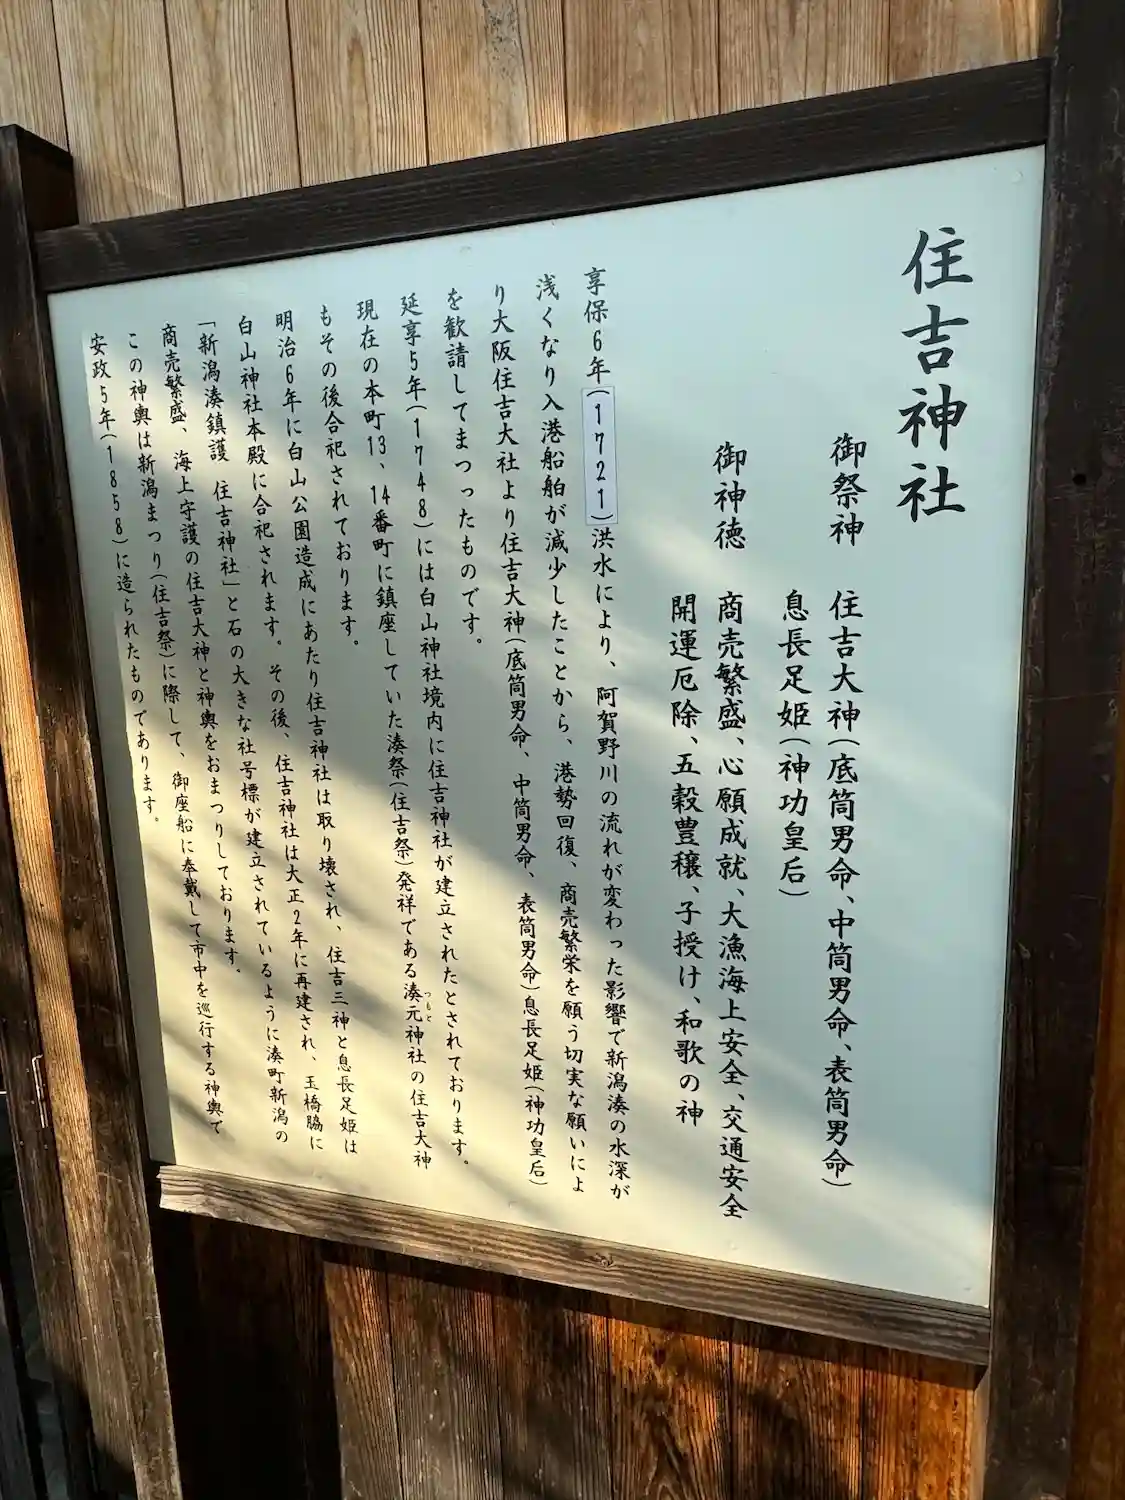 住吉神社
御祭神　住吉大神(底筒男命、中筒男命、表筒男命)
息長足姫(神功皇后)
御神徳　商売繁盛、心願成就、大漁海上安全、交通安全
開運厄除、五穀豊穣、子授け、和歌の神
享保6年(1721)洪水により、阿賀野川の流れが変わった影響で新潟湊の水深が
浅くなり入港船舶が減少したことから、港勢回復、商売繁栄を願う切実な願いによ
り大阪住吉大社より住吉大神(底筒男命、中筒男命、表筒男命)息長足姫(神功皇后)
を歓請してまつったものです。
延享5年(1748)には白山神社境内に住吉神社が建立されたとされております。
現在の本町13、14番町に鎮座していた湊祭(住吉祭)発祥である湊元神社の住吉大神
つもと
もその後合祀されております。
明治6年に白山公園造成にあたり住吉神社は取り壊され、住吉三神と息長足姫は
白山神社本殿に合祀されます。その後、住吉神社は大正2年に再建され、玉橋脇に
「新潟湊鎮護　住吉神社」と石の大きな社号標が建立されているように湊町新潟の
商売繁盛、海上守護の住吉大神と神輿をおまつりしております。
この神輿は新潟まつり(住吉祭)に際して、御座船に奉戴して市中を巡行する神輿で
安政5年(1858)に造られたものであります。